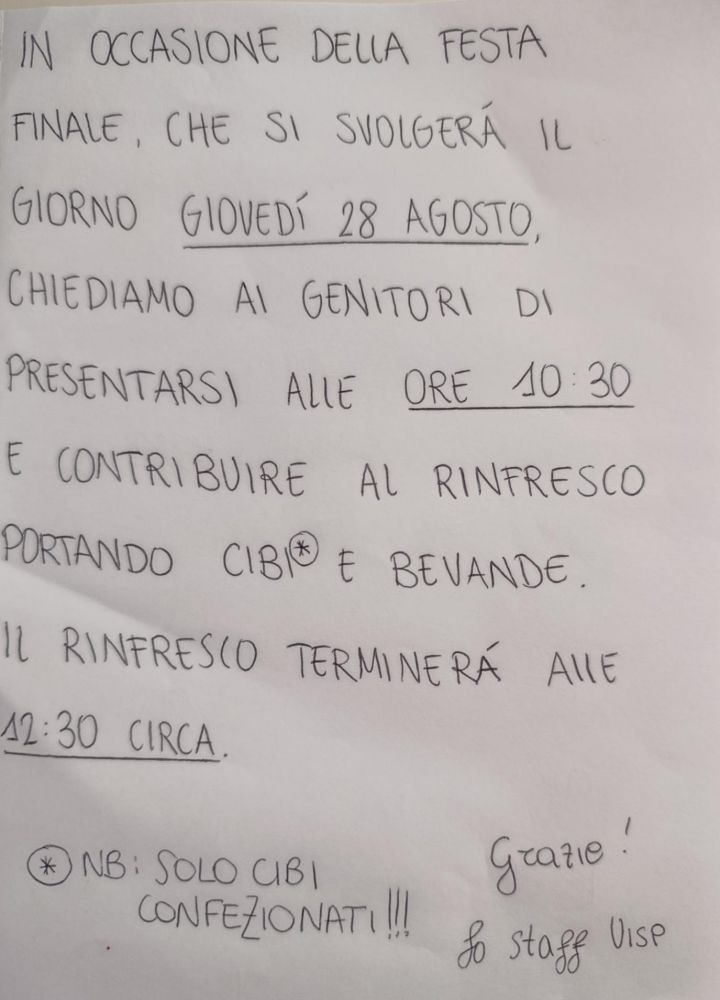 IN OCCASIONE DELLA FESTA
FINALE, CHE SI SVOLGERÁ IL
GIORNO GIOVEDÍ 28 AGOSTO,
CHIEDIAMO AI GENITORI DI
PRESENTARSI ALLE ORE 10:30
E CONTRIBUIRE AL RINFRESCO
PORTANDO CIBI* E BEVANDE.
IL RINFRESCO TERMINERÁ ALLE
12:30 CIRCA.
* NB: SOLO CIBI
CONFEZIONATI!!!
Grazie!
Lo staff UISP